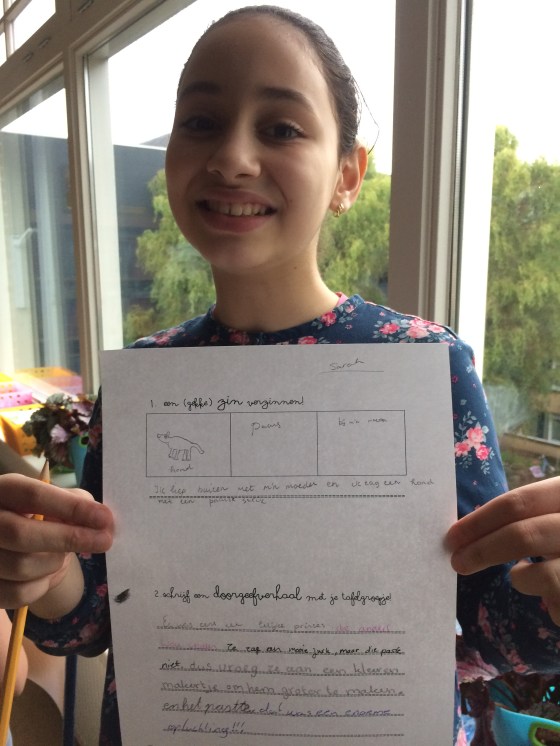 Sarah
1. een (gekke) zin verzinnen!
hond
paars
bij m'n
Ik liep buiten met m'n moeder en ik zag een hond
met een paarse
2. schrijf een doorgeefverhaal met je tafelgroepje!
Er was eens een lelijke prinses
Ze zag een mooie jurk, maar die paste
niet. dus vroeg ze aan een kleren
makertje om hem groter te maken.
enhet paste dat was een enorme
opluchting!!!